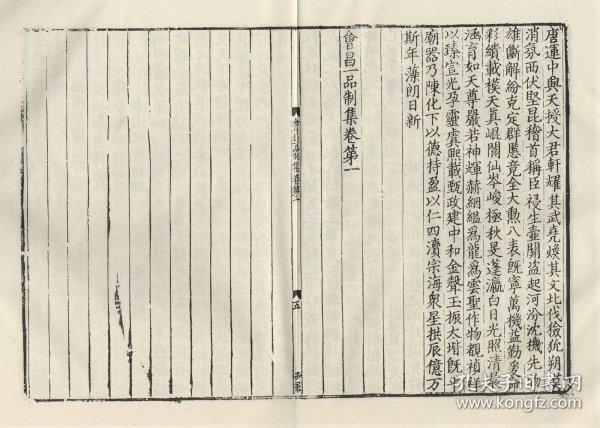 唐運中興天授大君軒耀其武堯煥其文北伐獫狁朔漠
消氛西伏堅昆稽首稱臣祲生壺關盜起河汾沈機先
雄斷解紛克定群慝竟全大勲八表旣寧萬機益勤爰命
彩繢載模天眞崐閬仙岑峻極秋旻蓬瀛白日光照清漘
涵育如天尊嚴若神輝赫絪縕爲龍爲雲聖作物覩禎祥
以臻宣光孕靈虞熙載甄政建中和金聲玉振大堦旣平
廟器乃陳化下以德持盈以仁四瀆宗海衆星拱辰億万
斯年薄朗日新
會昌一品制集卷第一
會昌一品制集卷第一
五
孔夫子旧书网
www.kongfz.com